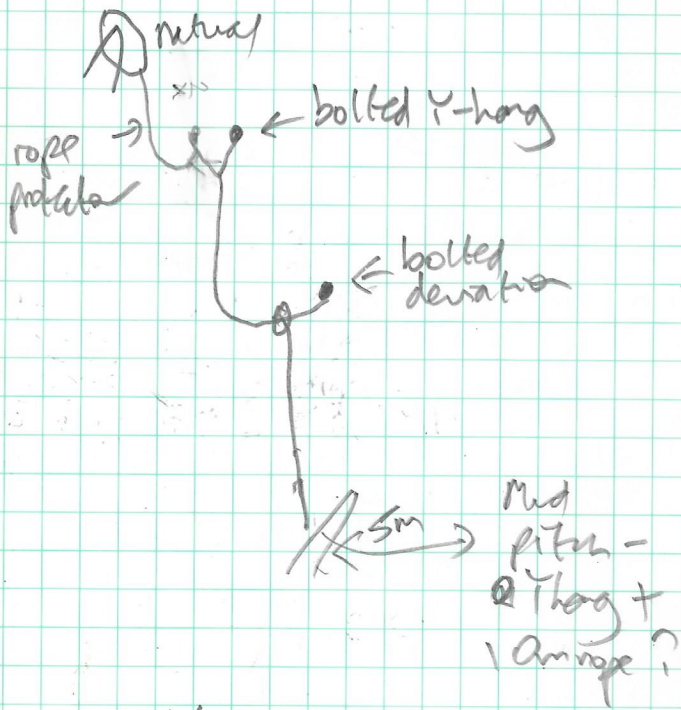 natural
bolted Y-hang
rope
protector
bolted
deviation
5m
Mud
pitch -
Yhang +
10m rope ?